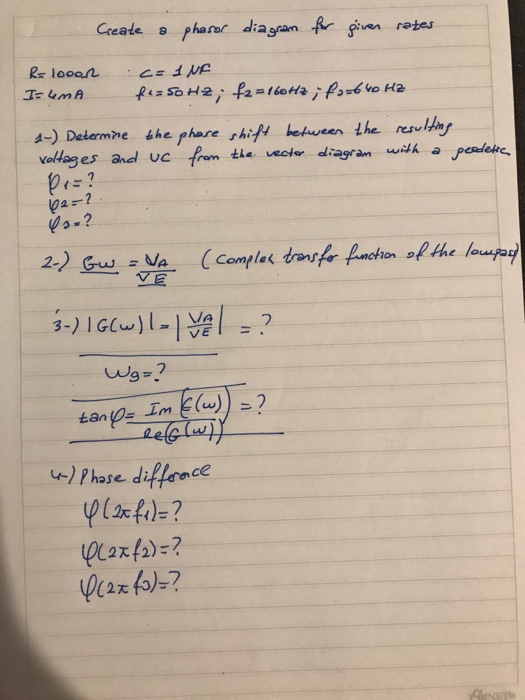 Create a phasor diagram for given rates
R= 1000Ω : C= 1 NF
I= 4mA f1= 50Hz; f2=160Hz; f3=640 HZ
1-) Determine the phase shift between the resulting
voltages and UC from the vector diagram with a
φ1=?
φ2=?
φ3=?
2-) Gω = VA / VE (Complex transfer function of the lowpass)
3-) |G(ω)| = |VA/VE| = ?
ωg=?
tanφ= Im (G(ω)) / Re(G(ω)) =?
4-) Phase difference
φ(2πf1)=?
φ(2πf2)=?
φ(2πf3)=?